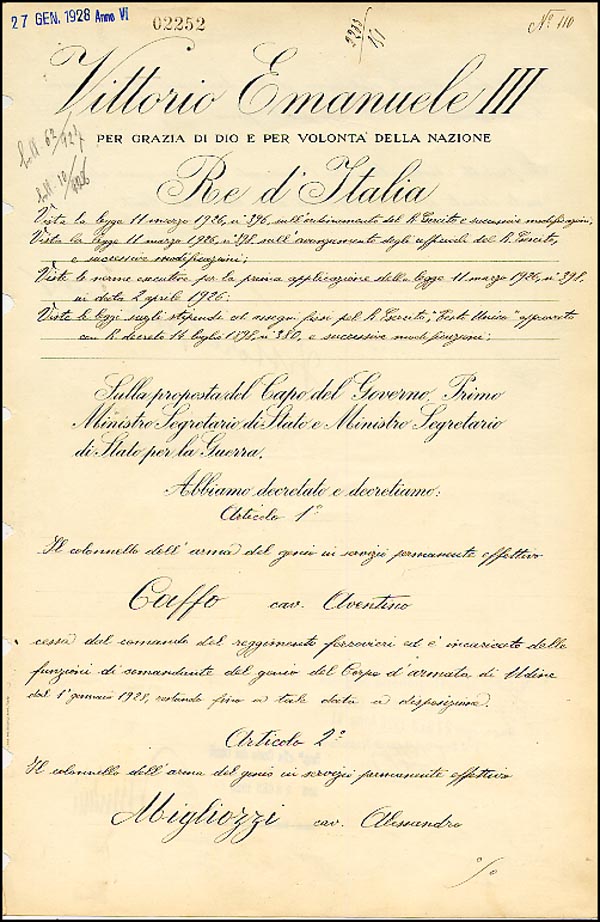 27 GEN. 1928 Anno VI
02252
2283/151
Nº 110
Vittorio Emanuele III
PER GRAZIA DI DIO E PER VOLONTA' DELLA NAZIONE
Re d'Italia
Vista la legge 11 marzo 1926, n° 396, sull'ordinamento del R. Esercito e successive modificazioni;
Vista la legge 11 marzo 1926, n° 398 sull'avanzamento degli ufficiali del R. Esercito,
e successive modificazioni;
Viste le norme esecutive per la prima applicazione della legge 11 marzo 1926, n° 398,
in data 2 aprile 1926;
Viste le leggi sugli stipendi ed assegni fissi pel R. Esercito, "Testo Unico" approvato
con R. decreto 14 luglio 1898, n° 380, e successive modificazioni;
Sulla proposta del Capo del Governo, Primo
Ministro Segretario di Stato e Ministro Segretario
di Stato per la Guerra,
Abbiamo decretato e decretiamo:
Articolo 1°
Il colonnello dell'arma del genio in servizio permanente effettivo
Caffo cav. Aventino
cessa dal comando del reggimento ferrovieri ed è incaricato delle
funzioni di comandante del genio del Corpo d'armata di Udine
dal 1° gennaio 1928, restando fino a tale data a disposizione.
Articolo 2°
Il colonnello dell'arma del genio in servizio permanente effettivo
Migliozzi cav. Alessandro
%